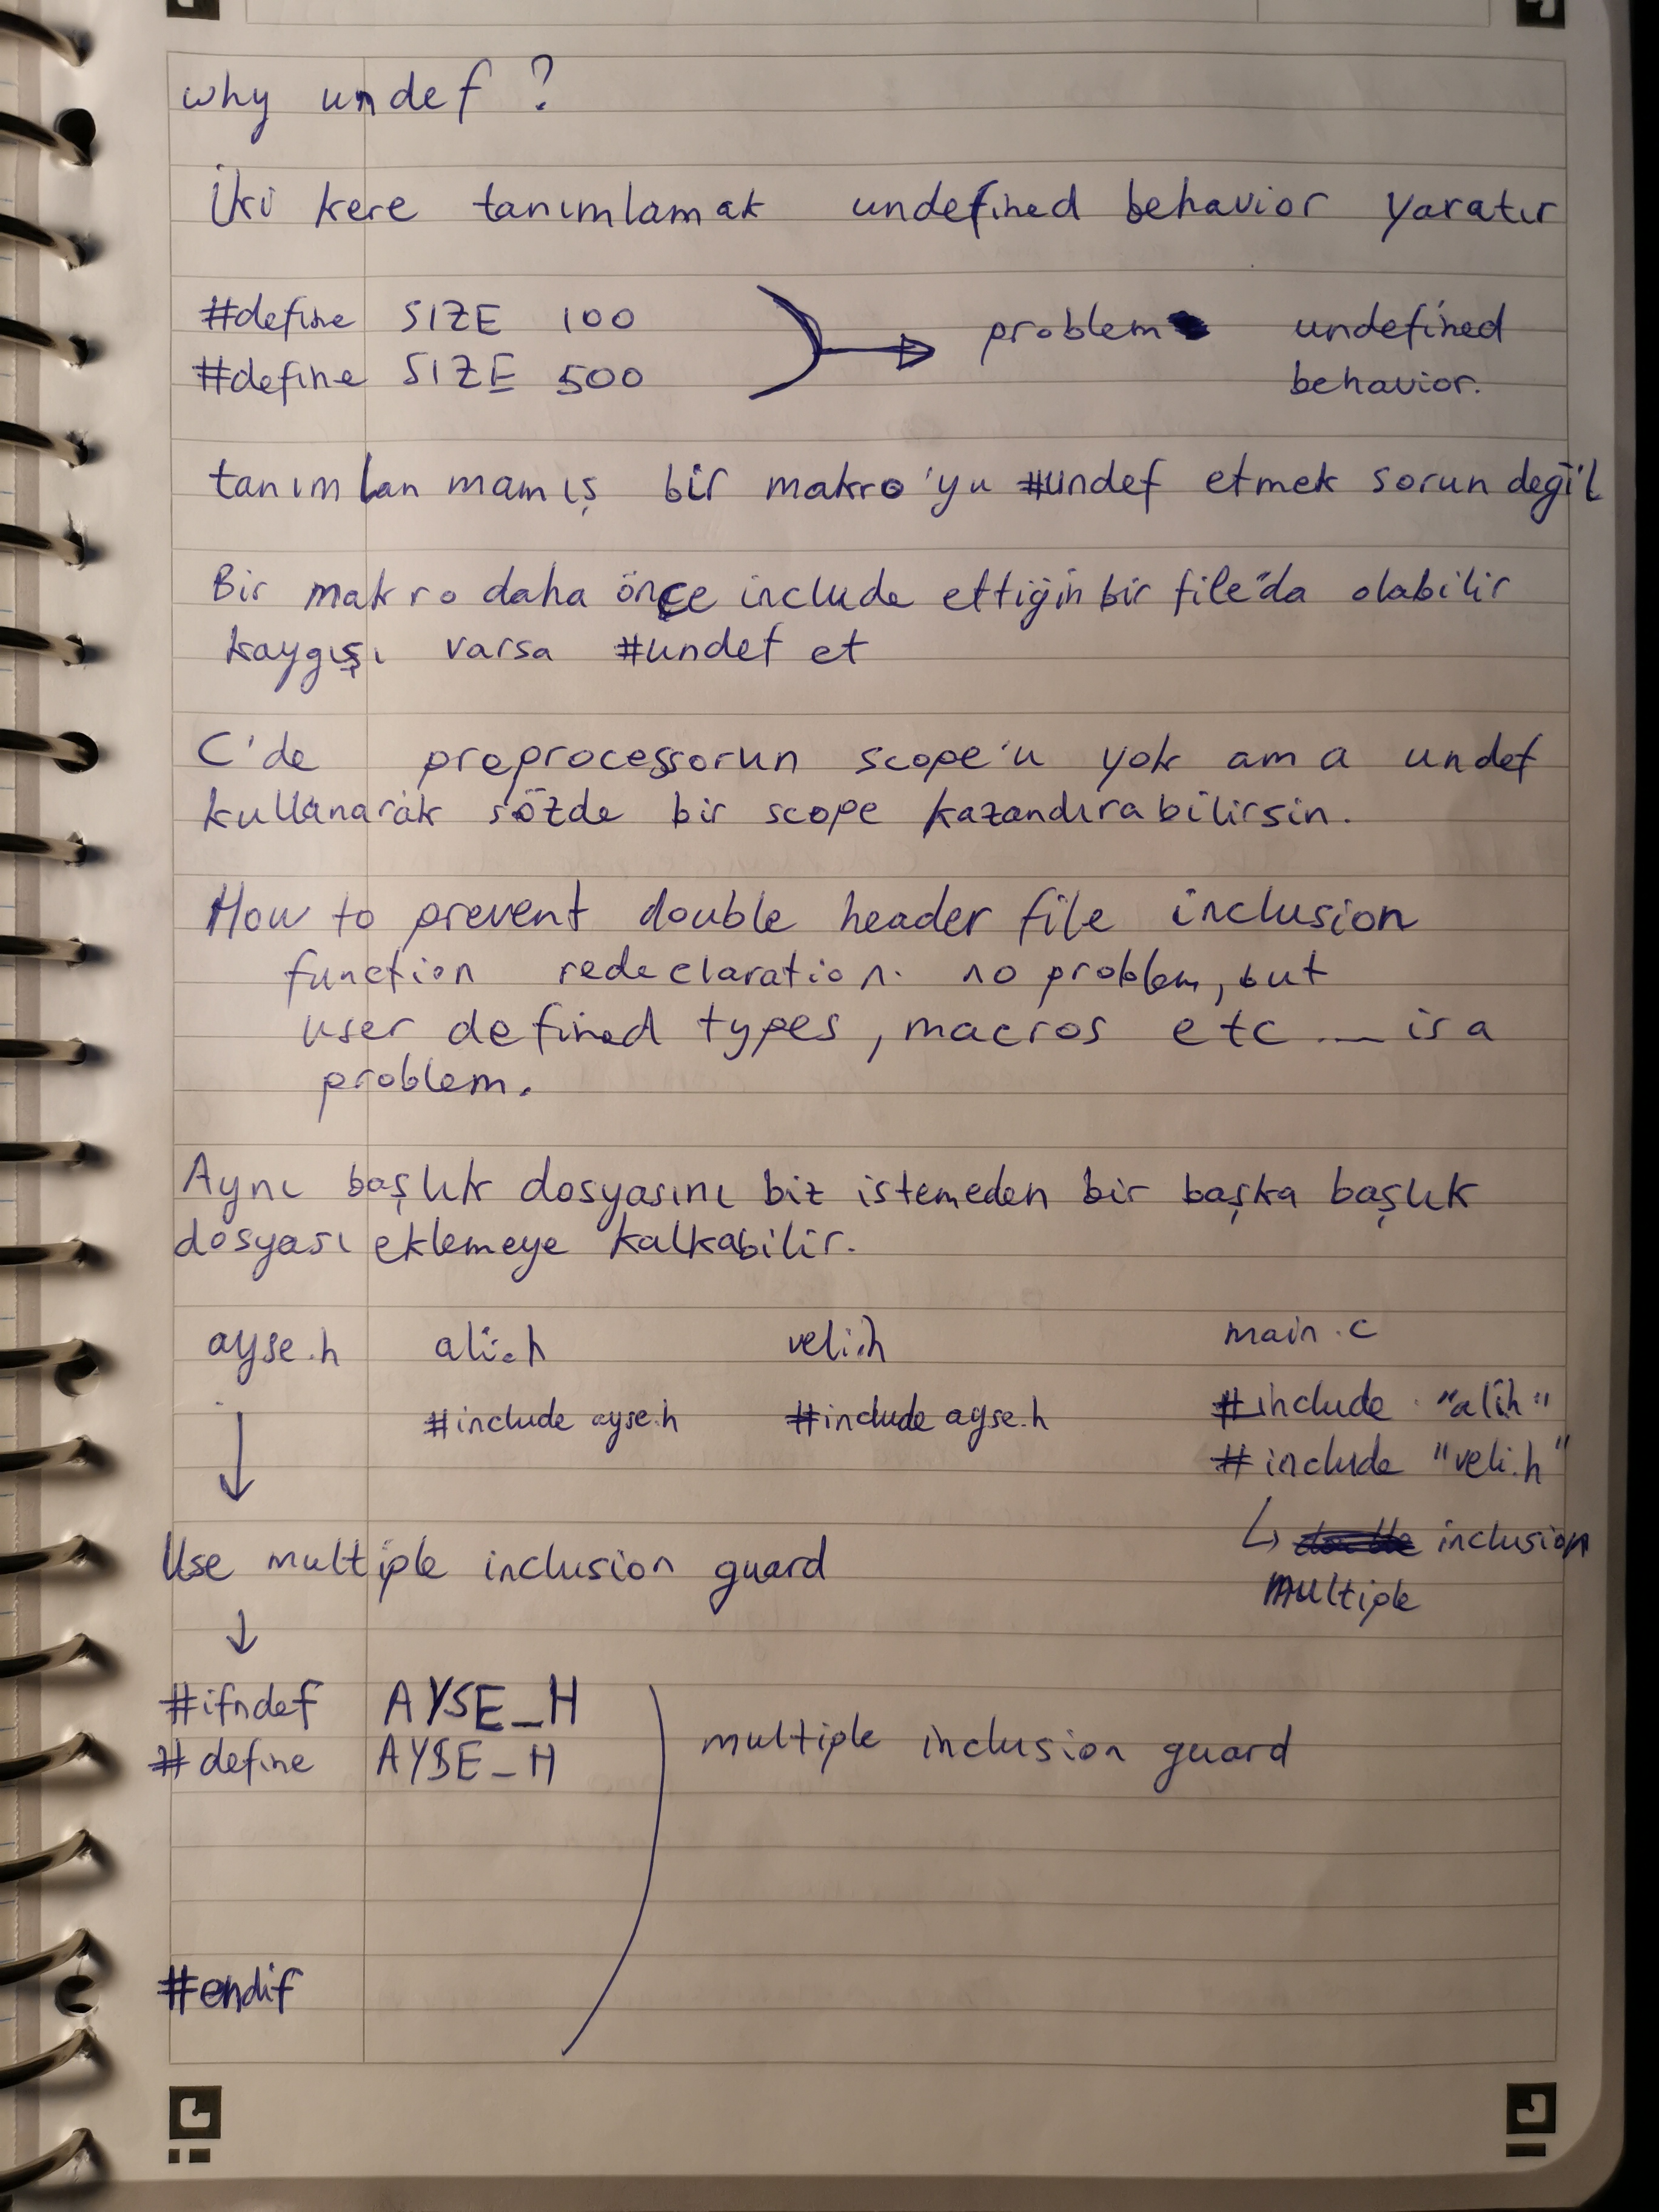 why undef ?
İki kere tanımlamak undefined behavior yaratır
#define SIZE 100
#define SIZE 500
problem undefined
behavior.
tanımlanmamış bir makro'yu #undef etmek sorun değil
Bir makro daha önce include ettiğin bir file'da olabilir
kaygışı varsa #undef et
C'de preprocessorun scope'u yok ama undef
kullanarak sözde bir scope kazandırabilirsin.
How to prevent double header file inclusion
function redeclaration. no problem, but
user defined types, macros etc ... is a
problem.
Aynı başlık dosyasını biz istemeden bir başka başlık
dosyası eklemeye kalkabilir.
ayse.h ali.h veli.h main.c
#include ayse.h #include ayse.h #include "ali.h"
#include "veli.h"
inclusion
Use multiple inclusion guard
Multiple
#ifndef AYSE_H
#define AYSE_H
multiple inclusion guard
#endif